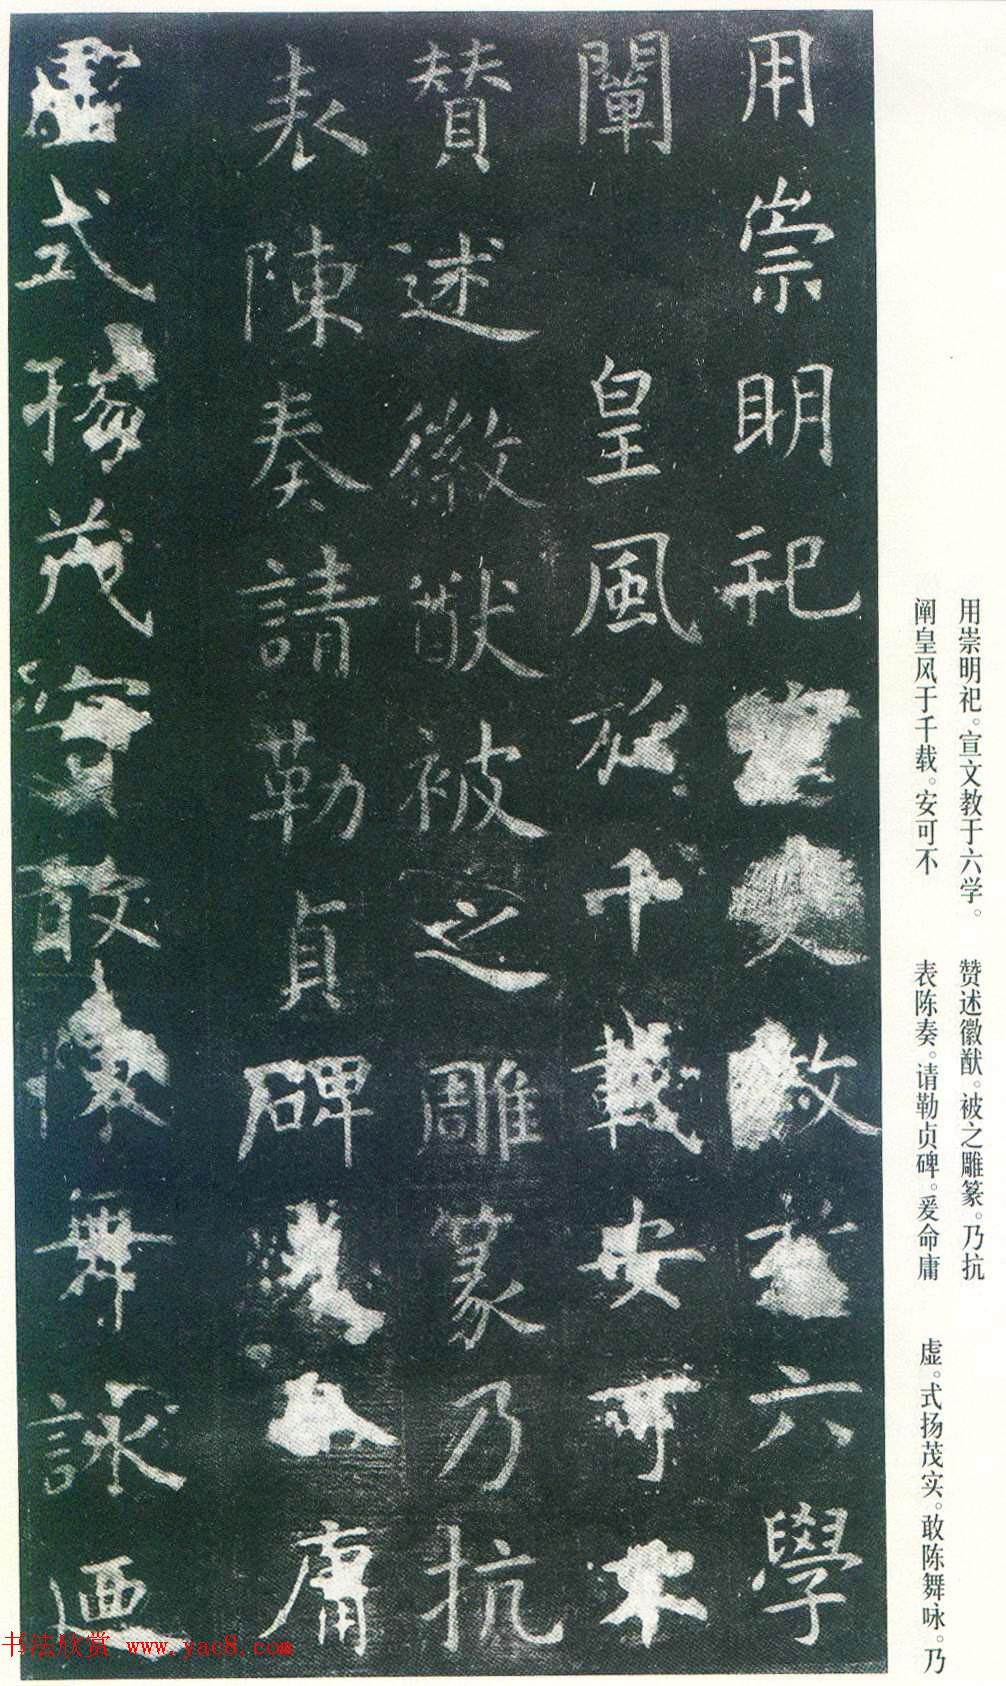 用崇明祀宣文教於六學
闡皇風於千載安可不
賛述徽猷被之雕篆乃抗
表陳奏請勒貞碑爰命庸
虛式揚茂實敢陳舞詠迺
用崇明祀。宣文教于六学。
阐皇风于千载。安可不
赞述徽猷。被之雕篆。乃抗
表陈奏。请勒贞碑。爰命庸
虚。式扬茂实。敢陈舞咏。乃
书法欣赏 www.yac8.com